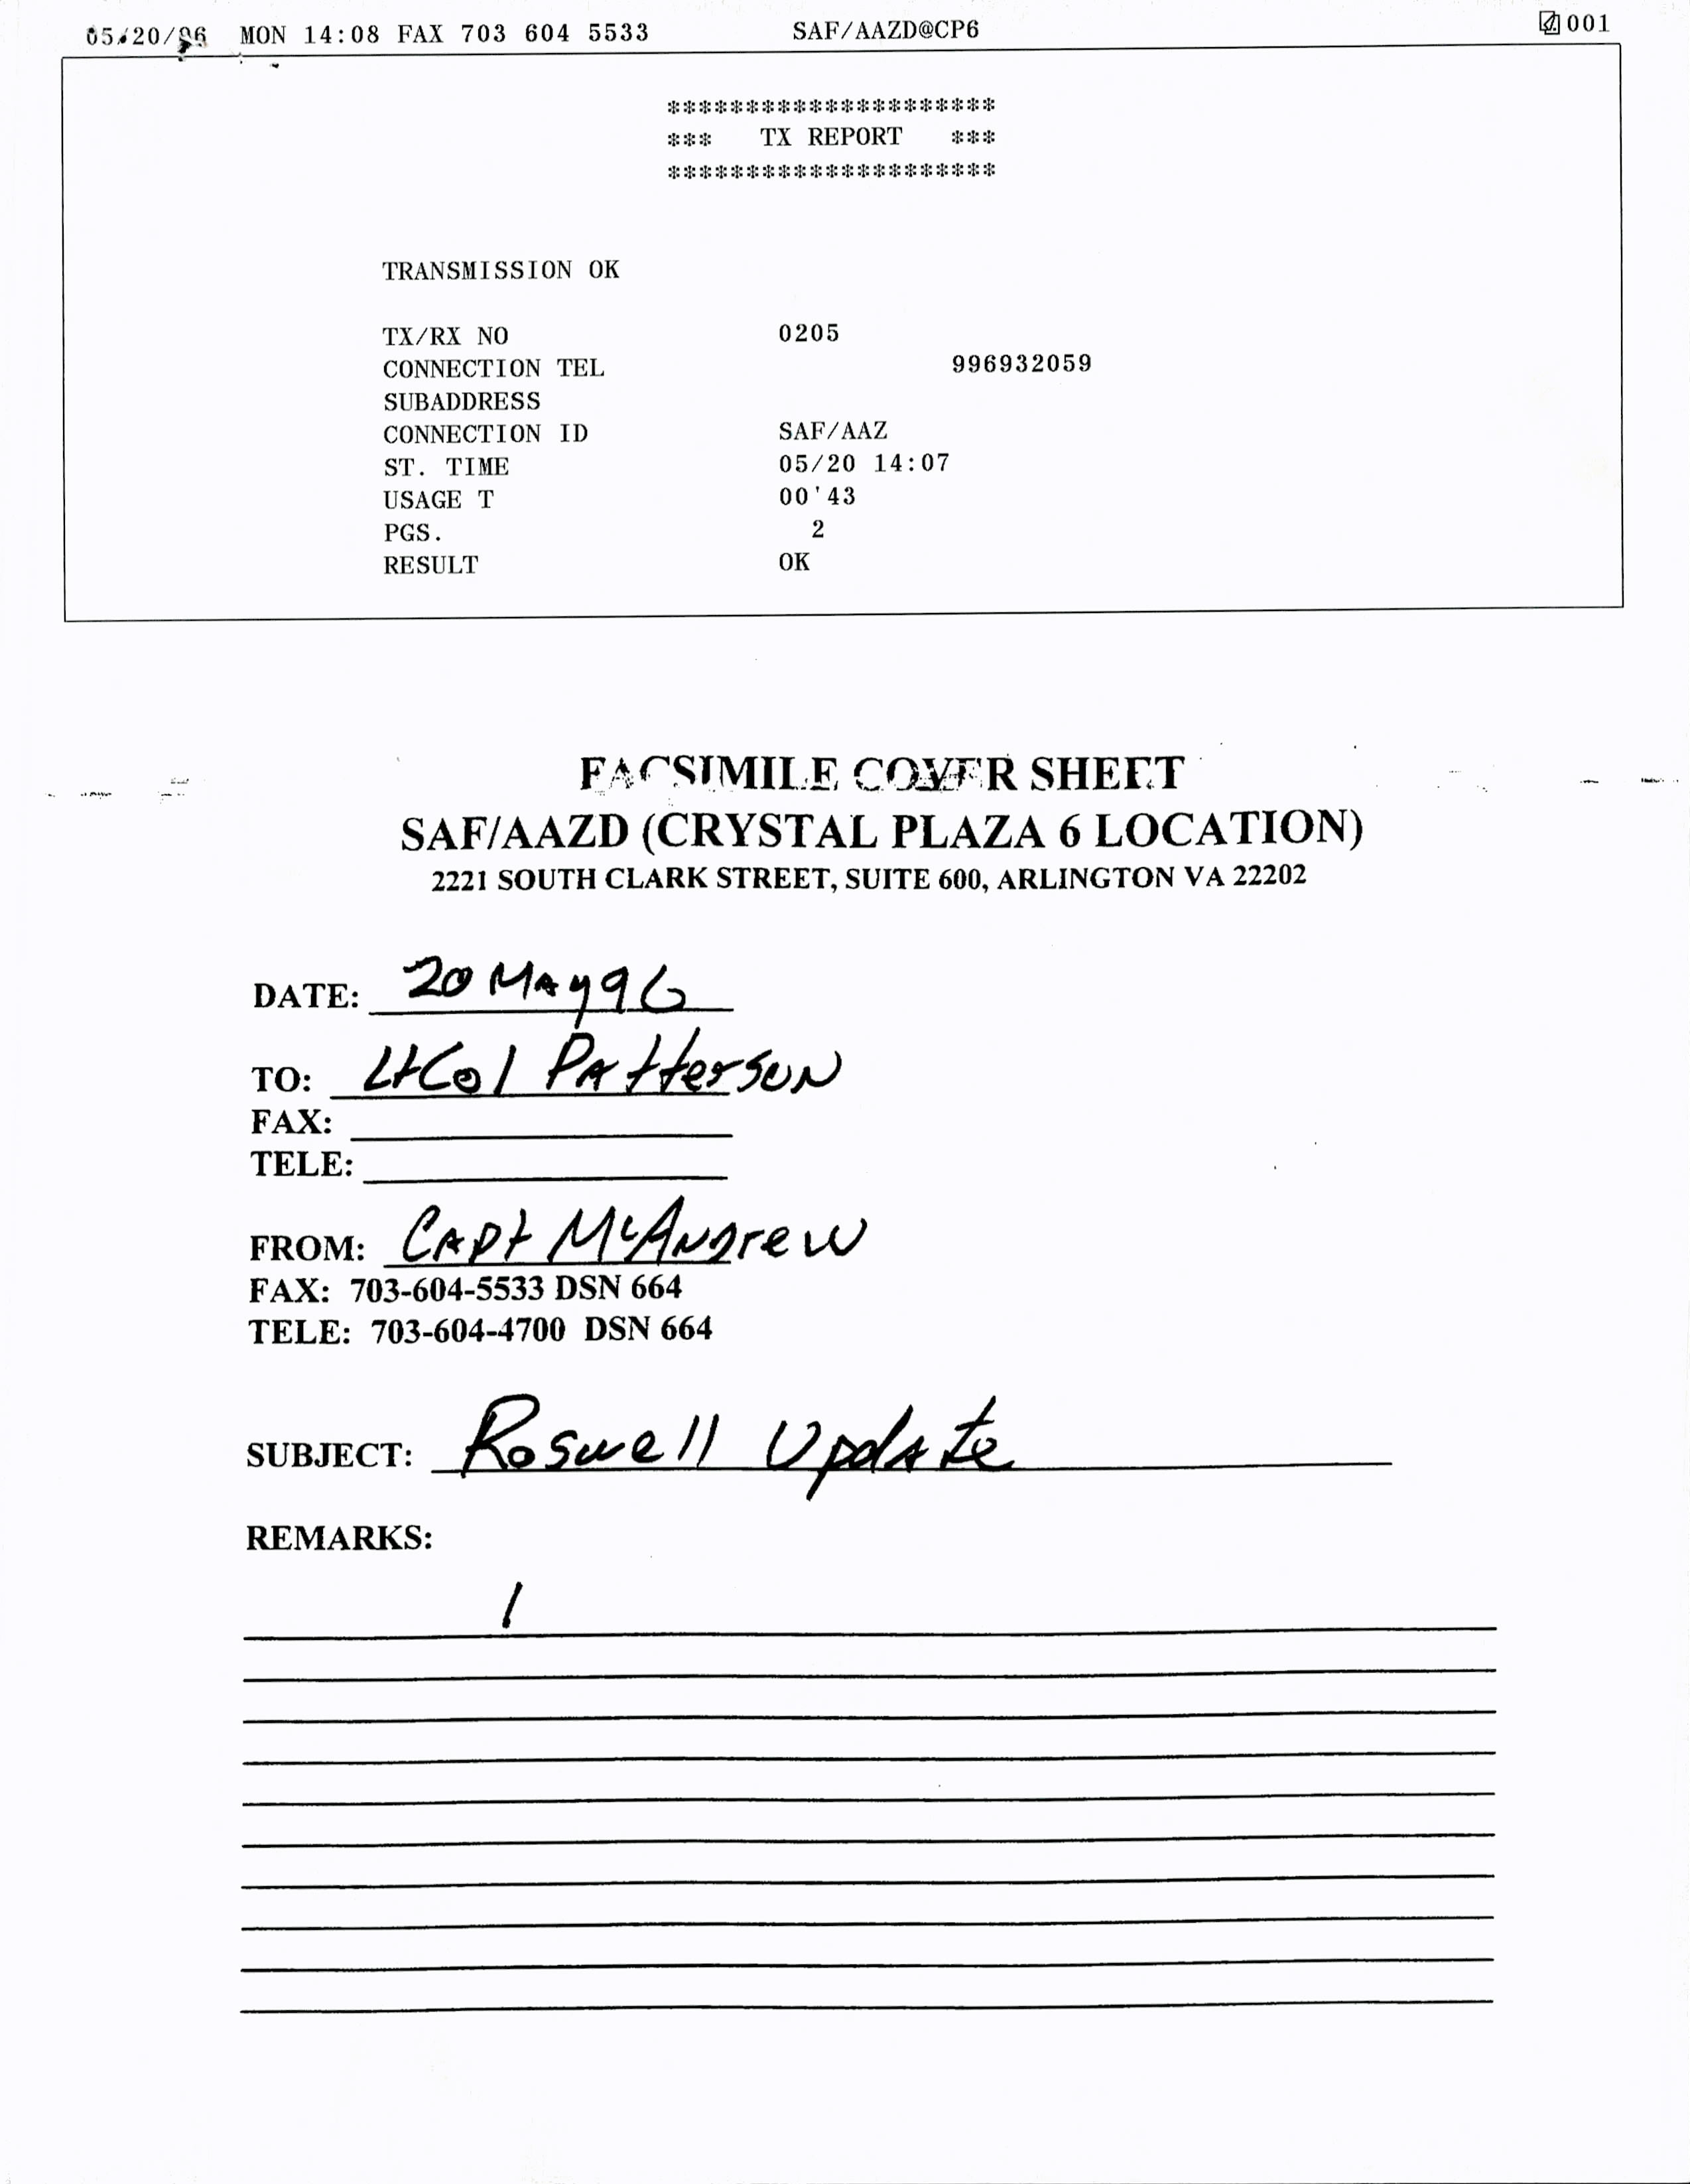 05/20/96 MON 14:08 FAX 703 604 5533 SAF/AAZD@CP6 001
*********************
*** TX REPORT ***
*********************
TRANSMISSION OK
TX/RX NO 0205
CONNECTION TEL 996932059
SUBADDRESS
CONNECTION ID SAF/AAZ
ST. TIME 05/20 14:07
USAGE T 00'43
PGS. 2
RESULT OK
FACSIMILE COVER SHEET
SAF/AAZD (CRYSTAL PLAZA 6 LOCATION)
2221 SOUTH CLARK STREET, SUITE 600, ARLINGTON VA 22202
DATE: 20 May 96
TO: LtCol Patterson
FAX:
TELE:
FROM: Capt McAndrew
FAX: 703-604-5533 DSN 664
TELE: 703-604-4700 DSN 664
SUBJECT: Roswell Update
REMARKS:
/